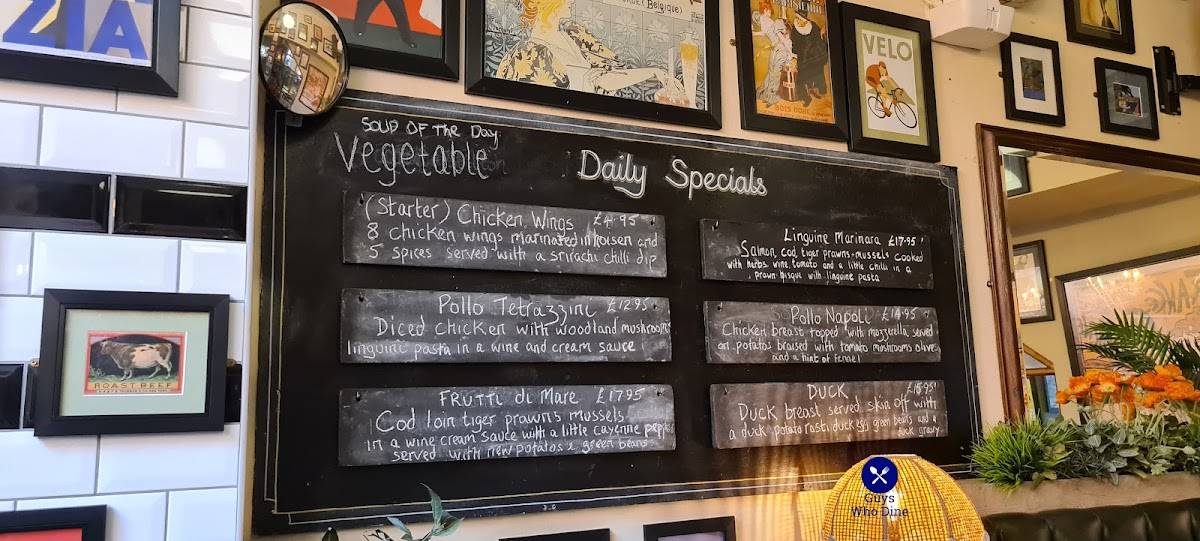 ZIA
(Belgique)
VELO
SOUP OF THE DAY
Vegetable
Daily Specials
(Starter) Chicken Wings £4.95
8 chicken wings marinated in hoisen and
5 spices served with a srirachi chilli dip
Pollo Tetrazzini £12.95
Diced chicken with woodland mushroom
linguine pasta in a wine and cream sauce
FRUTTI di Mare £17.95
Cod loin tiger prawns mussels
in a wine cream sauce with a little cayenne pepper
served with new potatos & green beans
Linguine Marinara £17.95
Salmon, cod, tiger prawns + mussels cooked
with herbs, wine, tomato and a little chilli in a
prawn bisque with linguine pasta
Pollo Napoli £14.95
Chicken breast topped with mozzerella served
on potatos braised with tomato mushrooms olive
and a hint of fennel
DUCK £15.95
Duck breast served skin off with
a duck potato rosti, duck egg green beans and a
duck gravy
ROAST BEEF
Guys
Who Dine